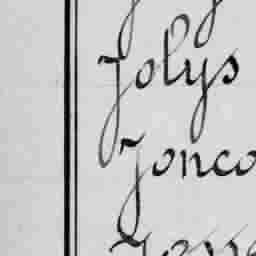 Jolys
Jonco